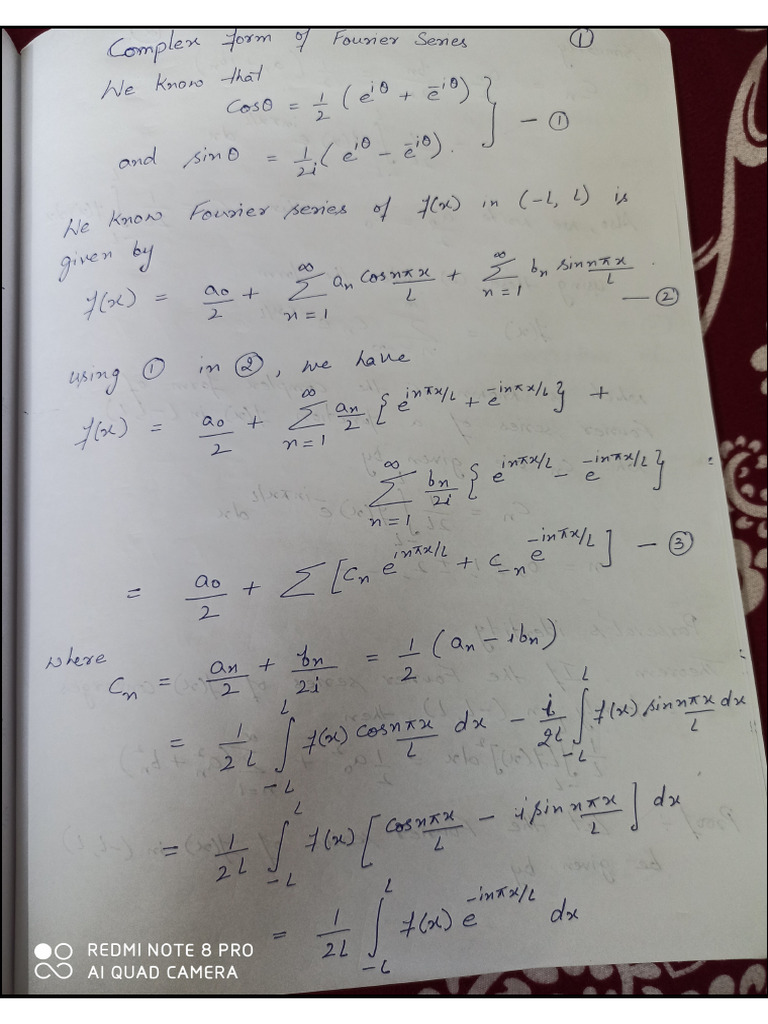 Complex Form of Fourier Series ①
We know that
cosθ = 1/2 (e^{iθ} + e^{-iθ}) }
and sinθ = 1/2i (e^{iθ} - e^{-iθ}). } — ①
We know Fourier series of f(x) in (-L, L) is
given by
f(x) = a₀/2 + ∑_{n=1}^{∞} aₙ cos nπx/L + ∑_{n=1}^{∞} bₙ sin nπx/L. — ②
using ① in ②, we have
f(x) = a₀/2 + ∑_{n=1}^{∞} aₙ/2 {e^{inπx/L} + e^{-inπx/L}} +
∑_{n=1}^{∞} bₙ/2i {e^{inπx/L} - e^{-inπx/L}}
= a₀/2 + ∑ [Cₙ e^{inπx/L} + C₋ₙ e^{-inπx/L}] — ③
where
Cₙ = aₙ/2 + bₙ/2i = 1/2 (aₙ - ibₙ)
= 1/2L ∫_{-L}^{L} f(x) cos nπx/L dx - i/2L ∫_{-L}^{L} f(x) sin nπx/L dx
= 1/2L ∫_{-L}^{L} f(x) [cos nπx/L - i sin nπx/L] dx
= 1/2L ∫_{-L}^{L} f(x) e^{-inπx/L} dx
REDMI NOTE 8 PRO
AI QUAD CAMERA